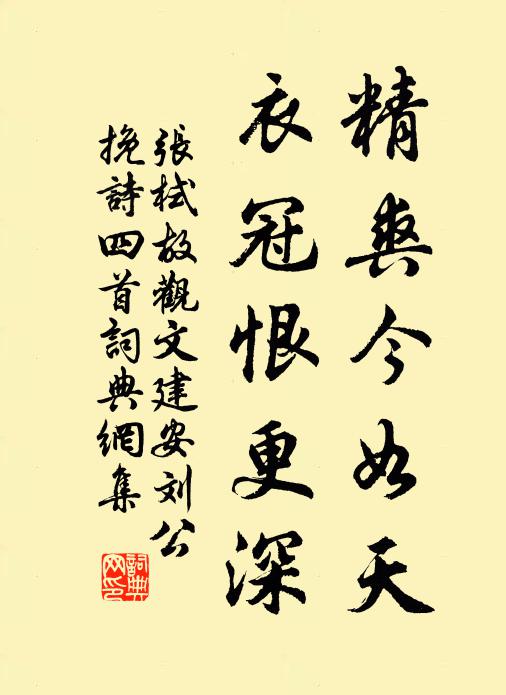 精爽今如天
衣冠恨更深
張栻故觀文建安刘公
挽詩四首詞典網集
詞典
网印